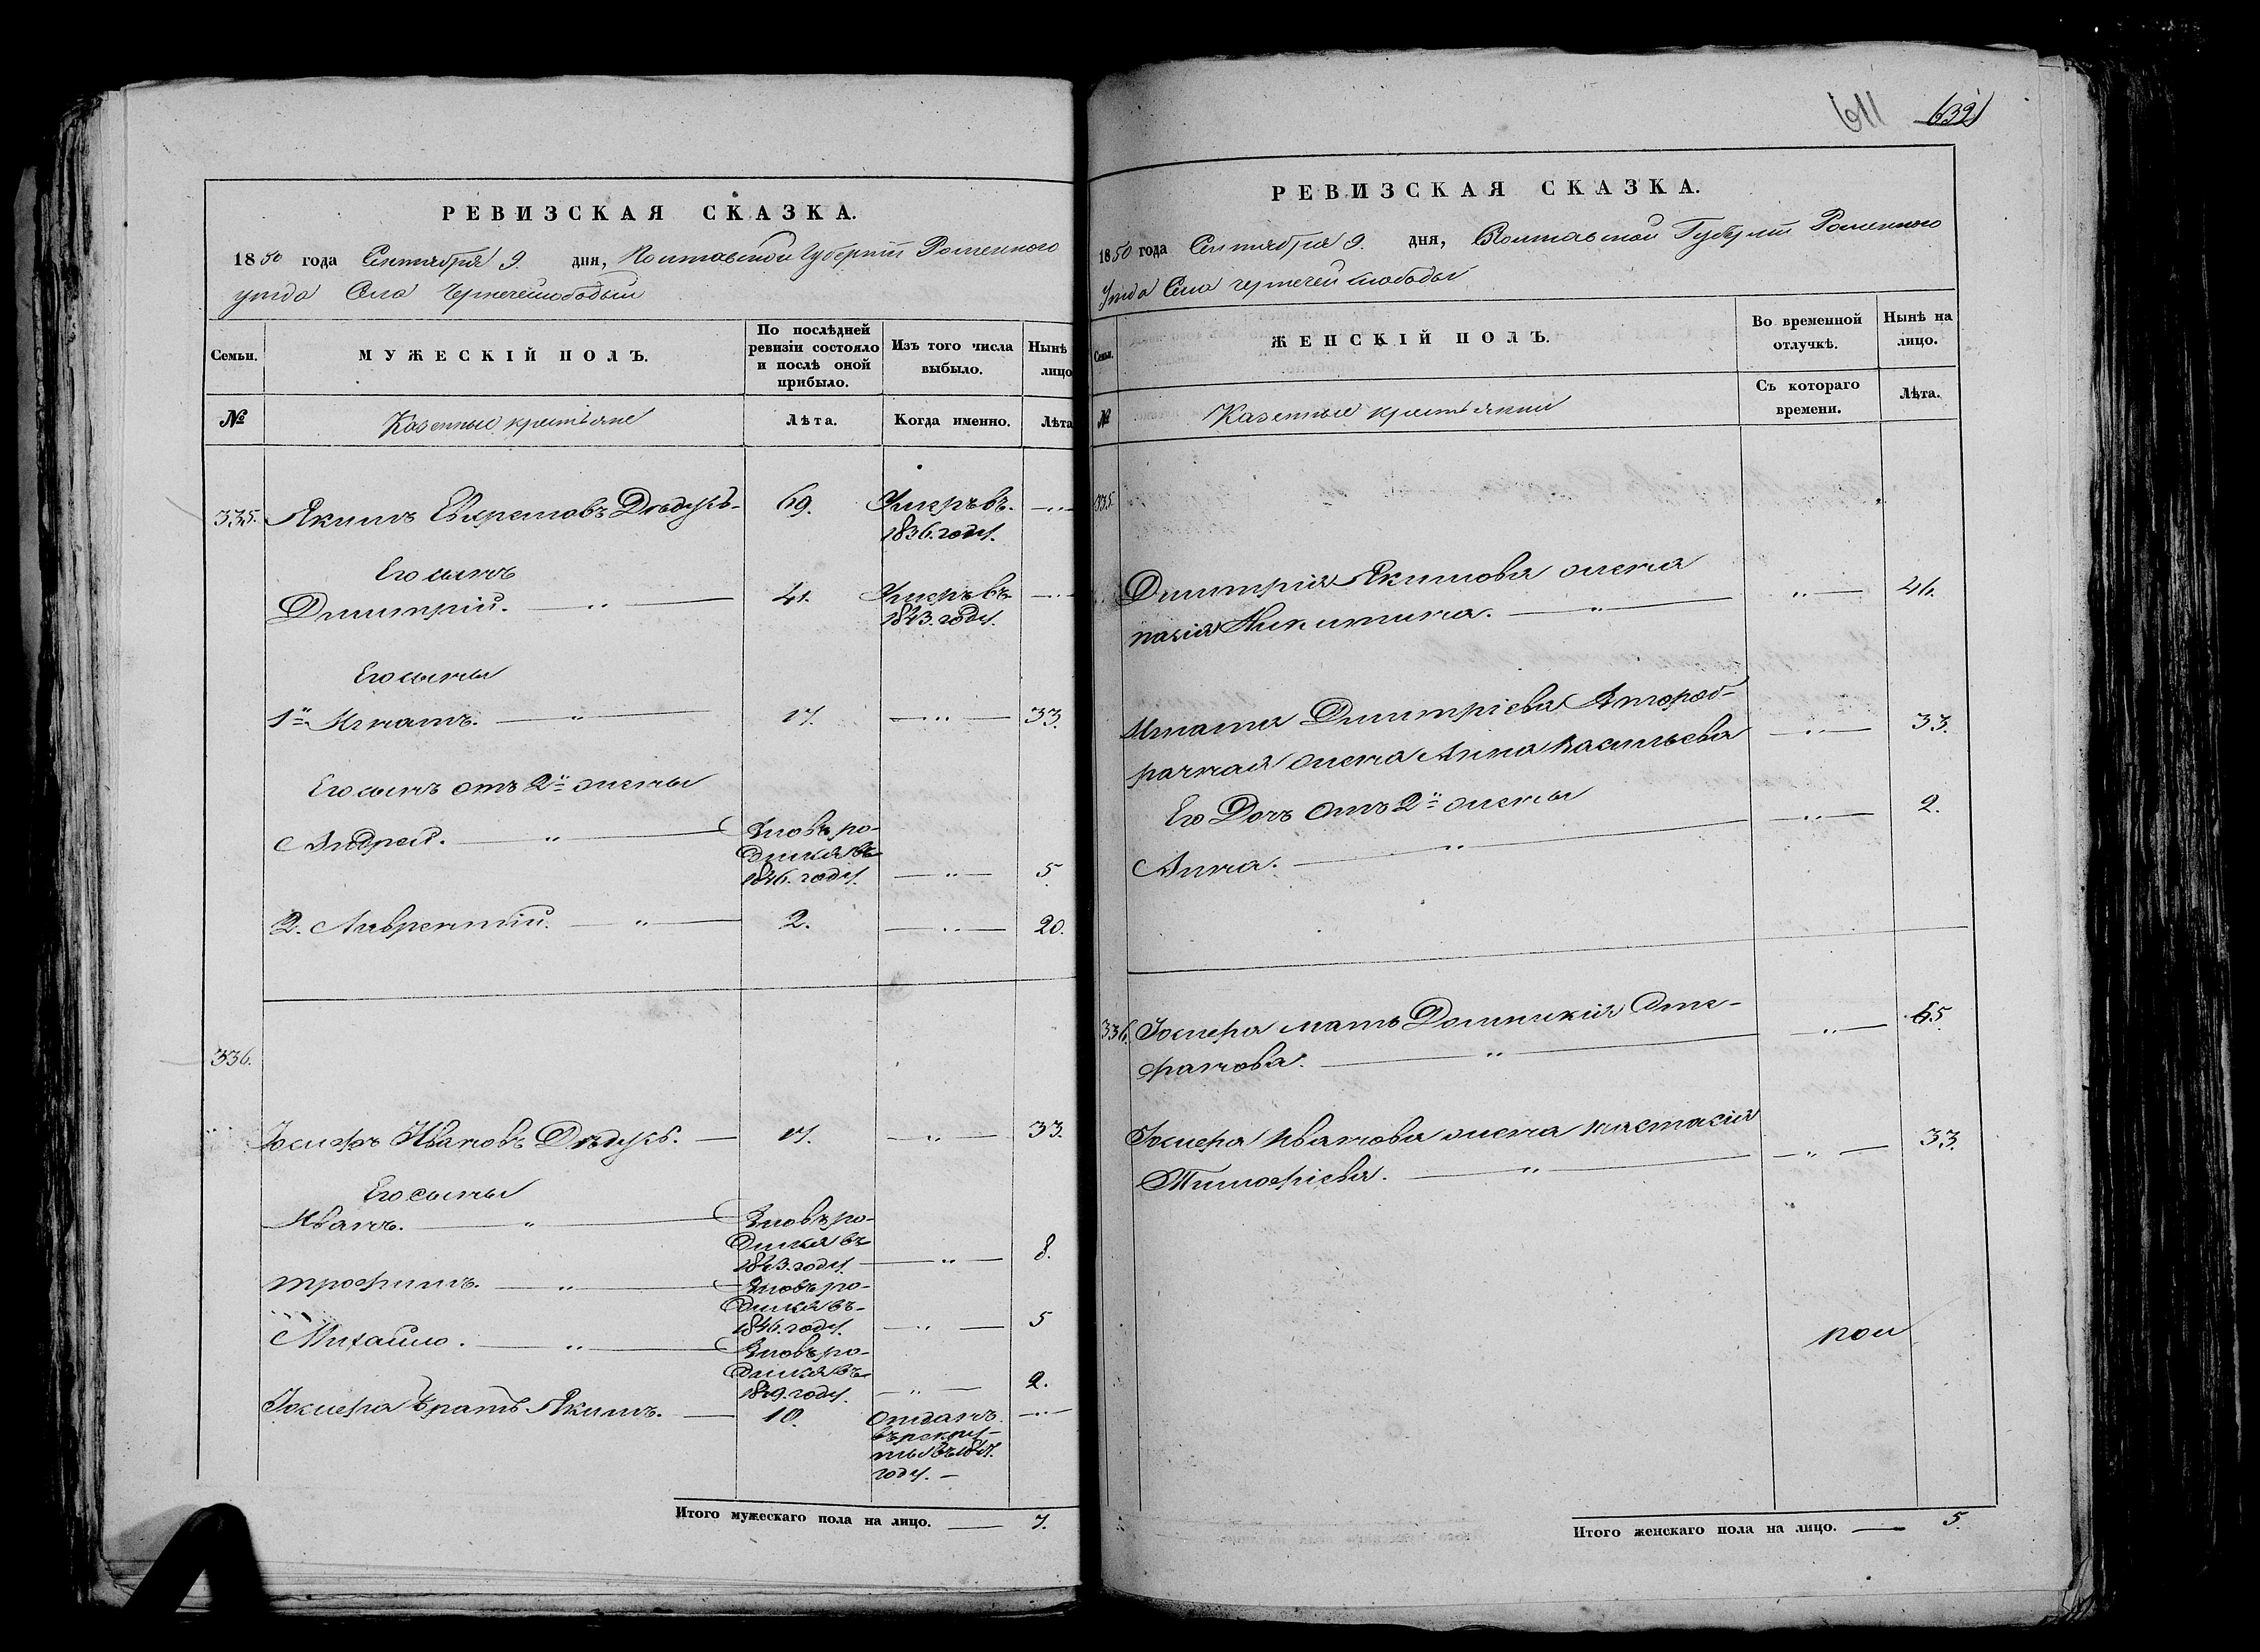 РЕВИЗСКАЯ СКАЗКА.
1850 года Сентября 9. дня, Полтавской Губерніи Роменного
уезда Села Чернечейслободы
Семьи.
МУЖЕСКІЙ ПОЛЪ.
По послѣдней
ревизіи состояло
и послѣ оной
прибыло.
Изъ того числа
выбыло.
Нынѣ
лицо
№
Казенные крестьяне
Лѣта.
Когда именно.
Лѣта
335. Якимъ Евхремовъ Дѣдусь. 69. Умеръ въ
1836. году.
Его сынъ
Димитрій. 41. Умеръ въ
1843. году.
Его сыны
1й Игнатъ. 17. 33.
Его сынъ отъ 2й жены
Андрей. Вновь ро-
дился въ
1846. году. 5
2. Лаврентій. 2. 20.
336.
Іосифъ Ивановъ Дѣдусь. 17. 33.
Его сыны
Иванъ. Вновь ро-
дился въ
1843. году. 8.
Трофимъ. Вновь ро-
дился въ
1846. году. 5
Михайло. Вновь ро-
дился въ
1849. году. 2.
Іосифа братъ Якимъ. 10. отданъ
въ рекру-
ты въ
году.
Итого мужескаго пола на лицо. 7.
611 639
РЕВИЗСКАЯ СКАЗКА.
1850 года Сентября 9. дня, Полтавской Губерніи Роменного
Уезда Села Чернечей слободы
Семьи.
ЖЕНСКІЙ ПОЛЪ.
Во временной
отлучкѣ.
Нынѣ на
лицо.
№
Казенные крестьянки
Съ котораго
времени.
Лѣта.
335.
Димитрія Якимова жена
Никитина. 46.
Игната Димитріева Второб-
рачная жена Анна Васильева 33.
Его Дочь отъ 2й жены
Анна. 2.
336. Іосифа мать Домникія Сте-
фанова. 65.
Іосифа Иванова жена Настасія
Тимофіева. 33.
Итого женскаго пола на лицо. 5.